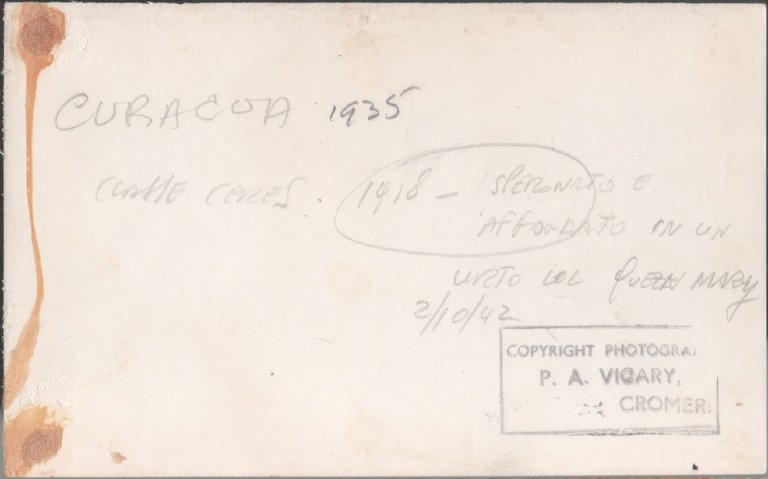 CURACOA 1935
CLASSE CERES. 1918 - SPERONATO E
AFFONDATO IN UN
URTO COL QUEEN MARY
2/10/42
COPYRIGHT PHOTOGRA
P. A. VICARY.
CROMER.